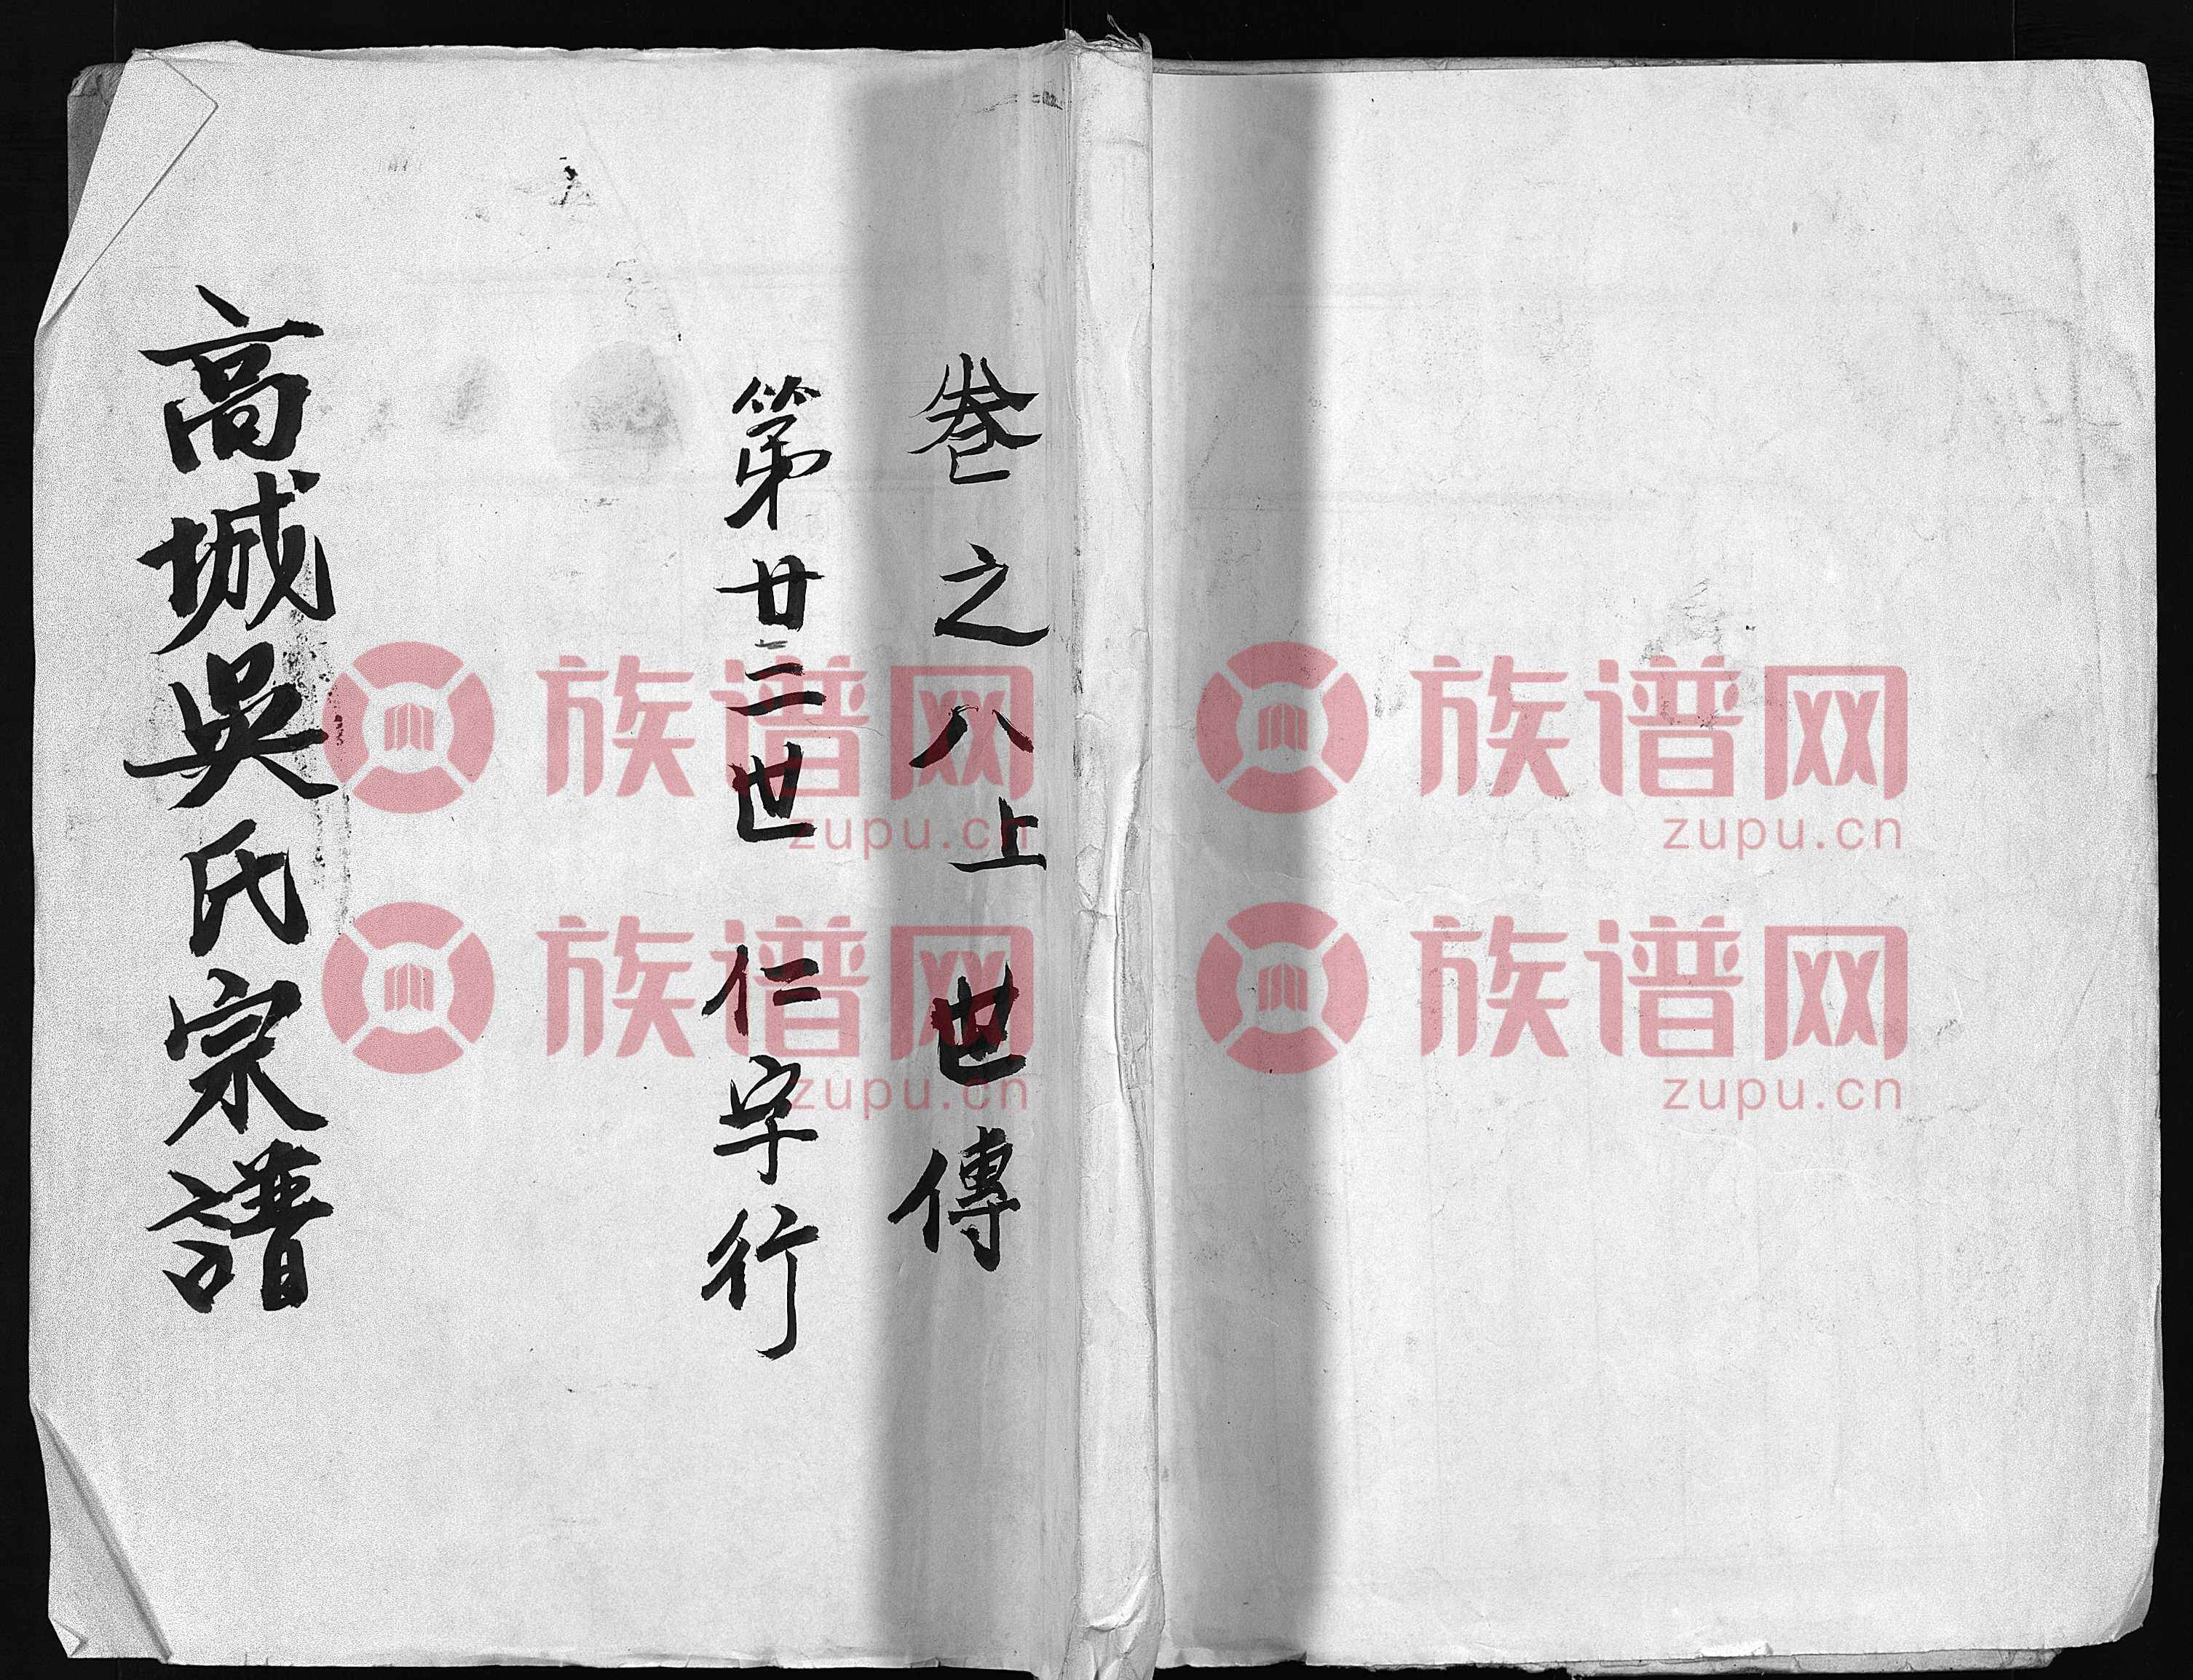 卷之八上 世傳
第廿二世 仁字行
高城吳氏宗譜
族谱网
zupu.cn
族谱网
zupu.cn
族谱网
zupu.cn
族谱网
zupu.cn